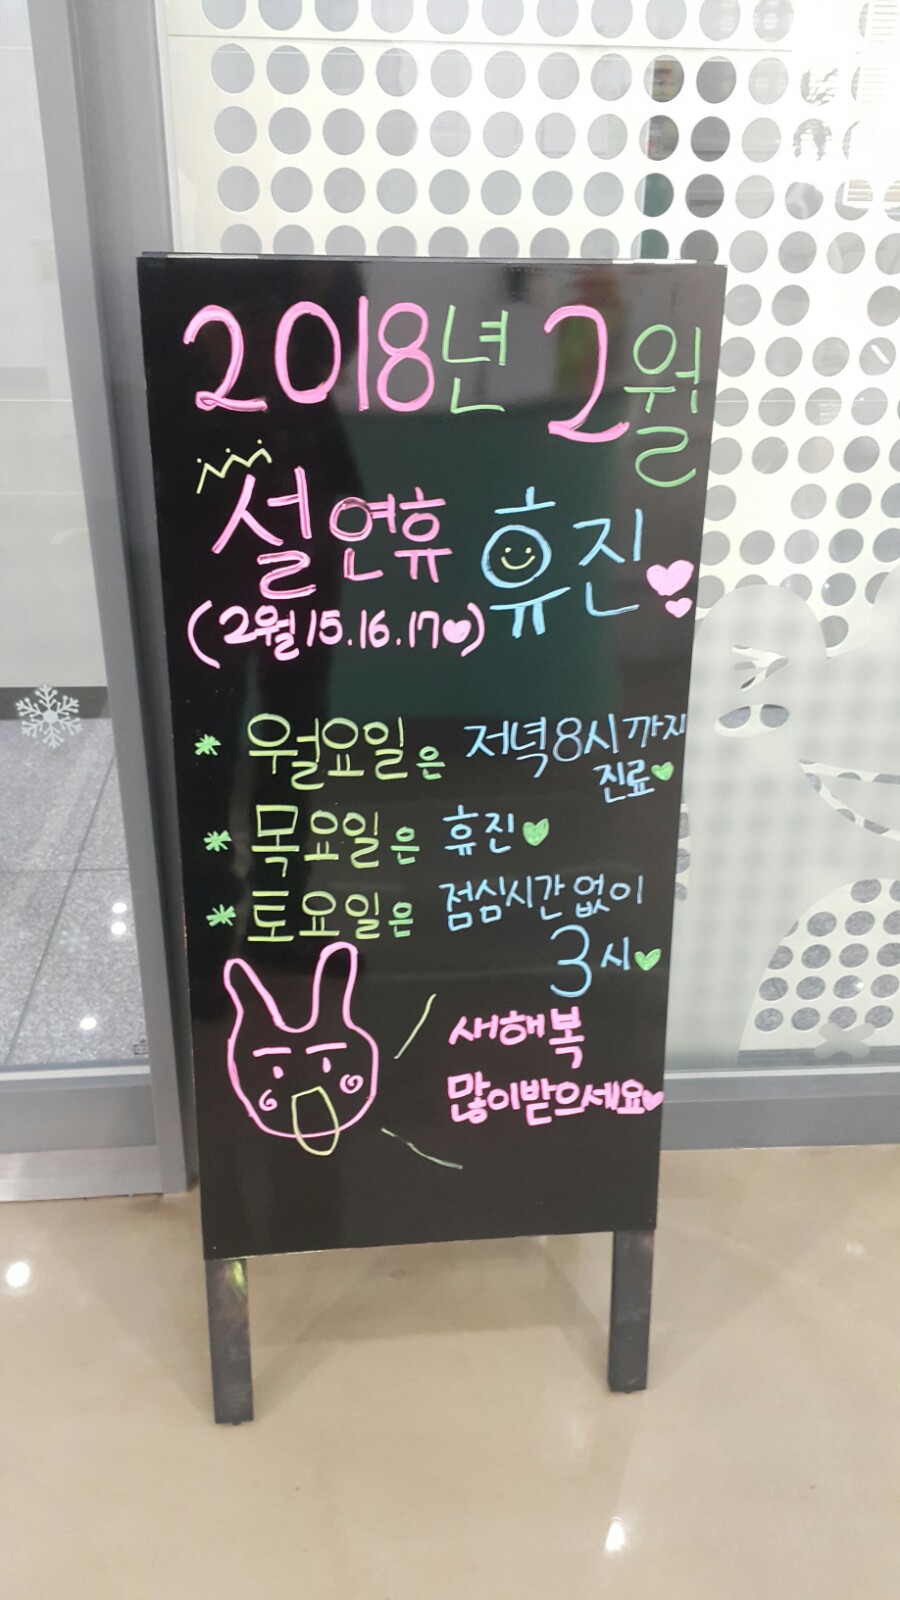 2018년 2월
설연휴 휴진
(2월 15.16.17)
* 월요일은 저녁8시까지
진료
* 목요일은 휴진
* 토요일은 점심시간없이
3시
새해복
많이받으세요